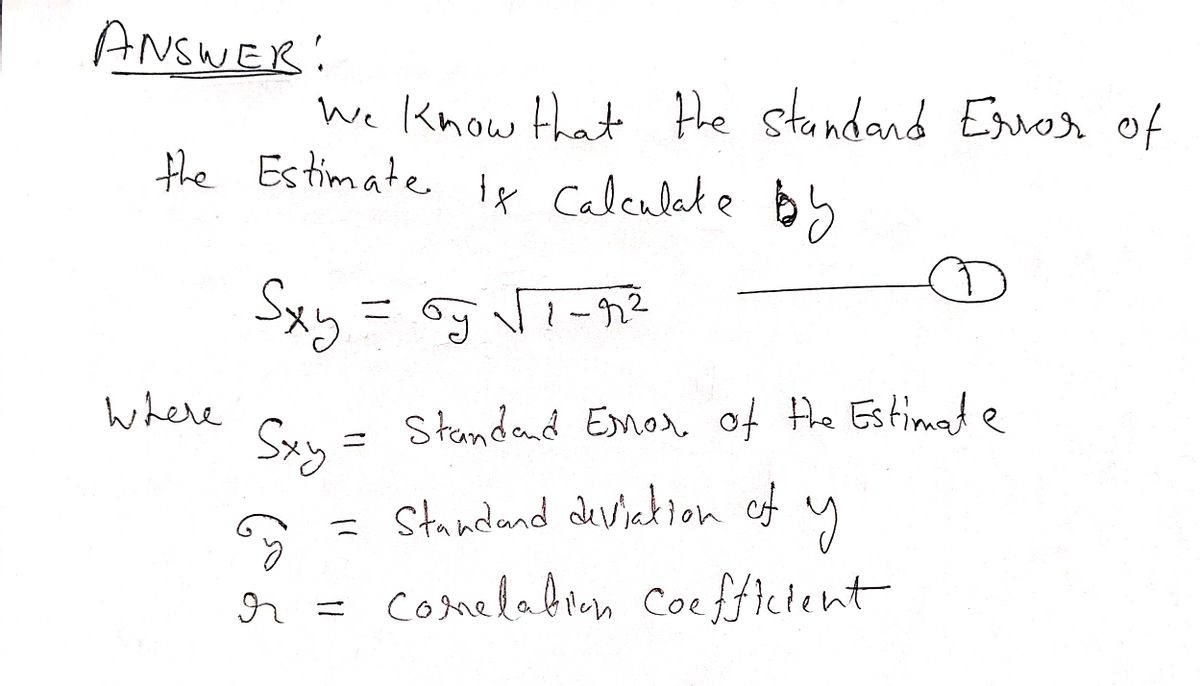 ANSWER:
We know that the standard Error of
the Estimate is Calculate by
Sxy = σy √1-r² ——— ①
where Sxy = Standard Error of the Estimate
σy = Standard deviation of y
r = correlation coefficient